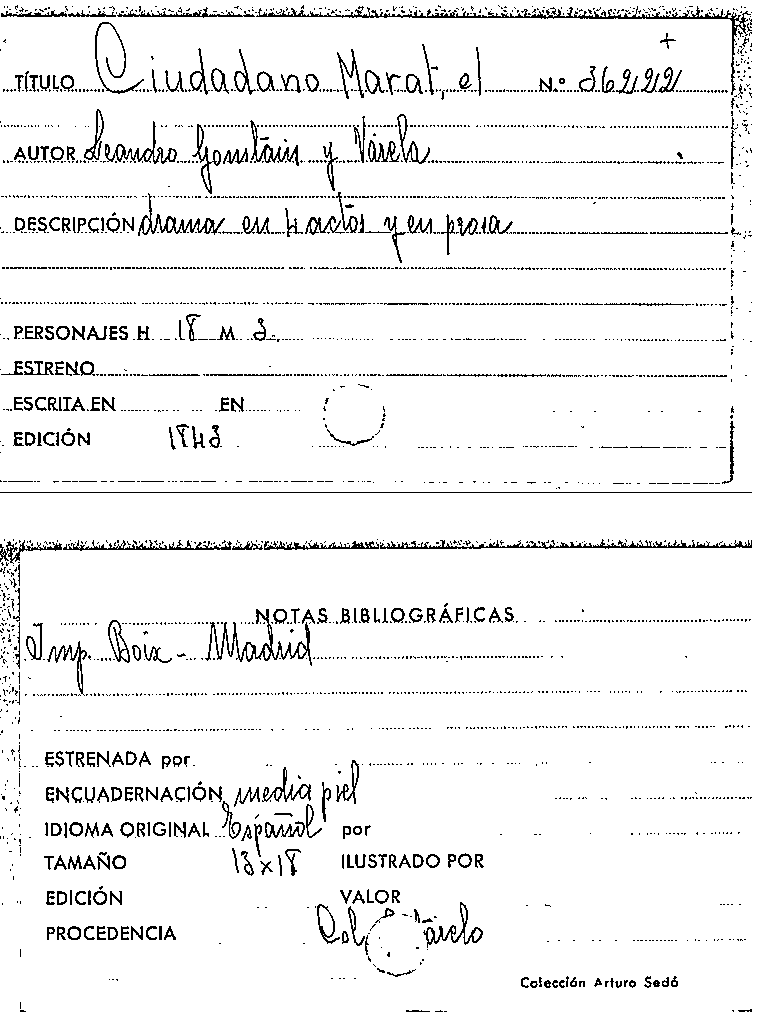 +
TÍTULO Ciudadano Marat, el N.º 36222
AUTOR Leandro y Várela
DESCRIPCIÓN drama en 4 actos y en prosa
PERSONAJES H 18 M 3.
ESTRENO
ESCRITA EN EN
EDICIÓN 1843
NOTAS BIBLIOGRÁFICAS
Imp. Boix - Madrid
ESTRENADA por
ENCUADERNACIÓN media piel
IDIOMA ORIGINAL Español por
TAMAÑO 13x18 ILUSTRADO POR
EDICIÓN VALOR
PROCEDENCIA Col.
Colección Arturo Sedó